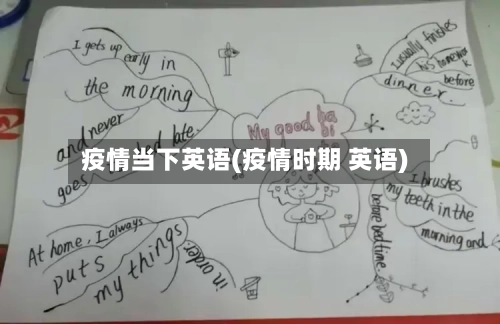 I gets up
early in
the morning
and never
goes
late.
I usually finishes
his homework
before
dinner.
My good habits
疫情当下英语(疫情时期 英语)
I brushes
my teeth in the
morning and
before bedtime.
At home, I always
puts
my things
in order.